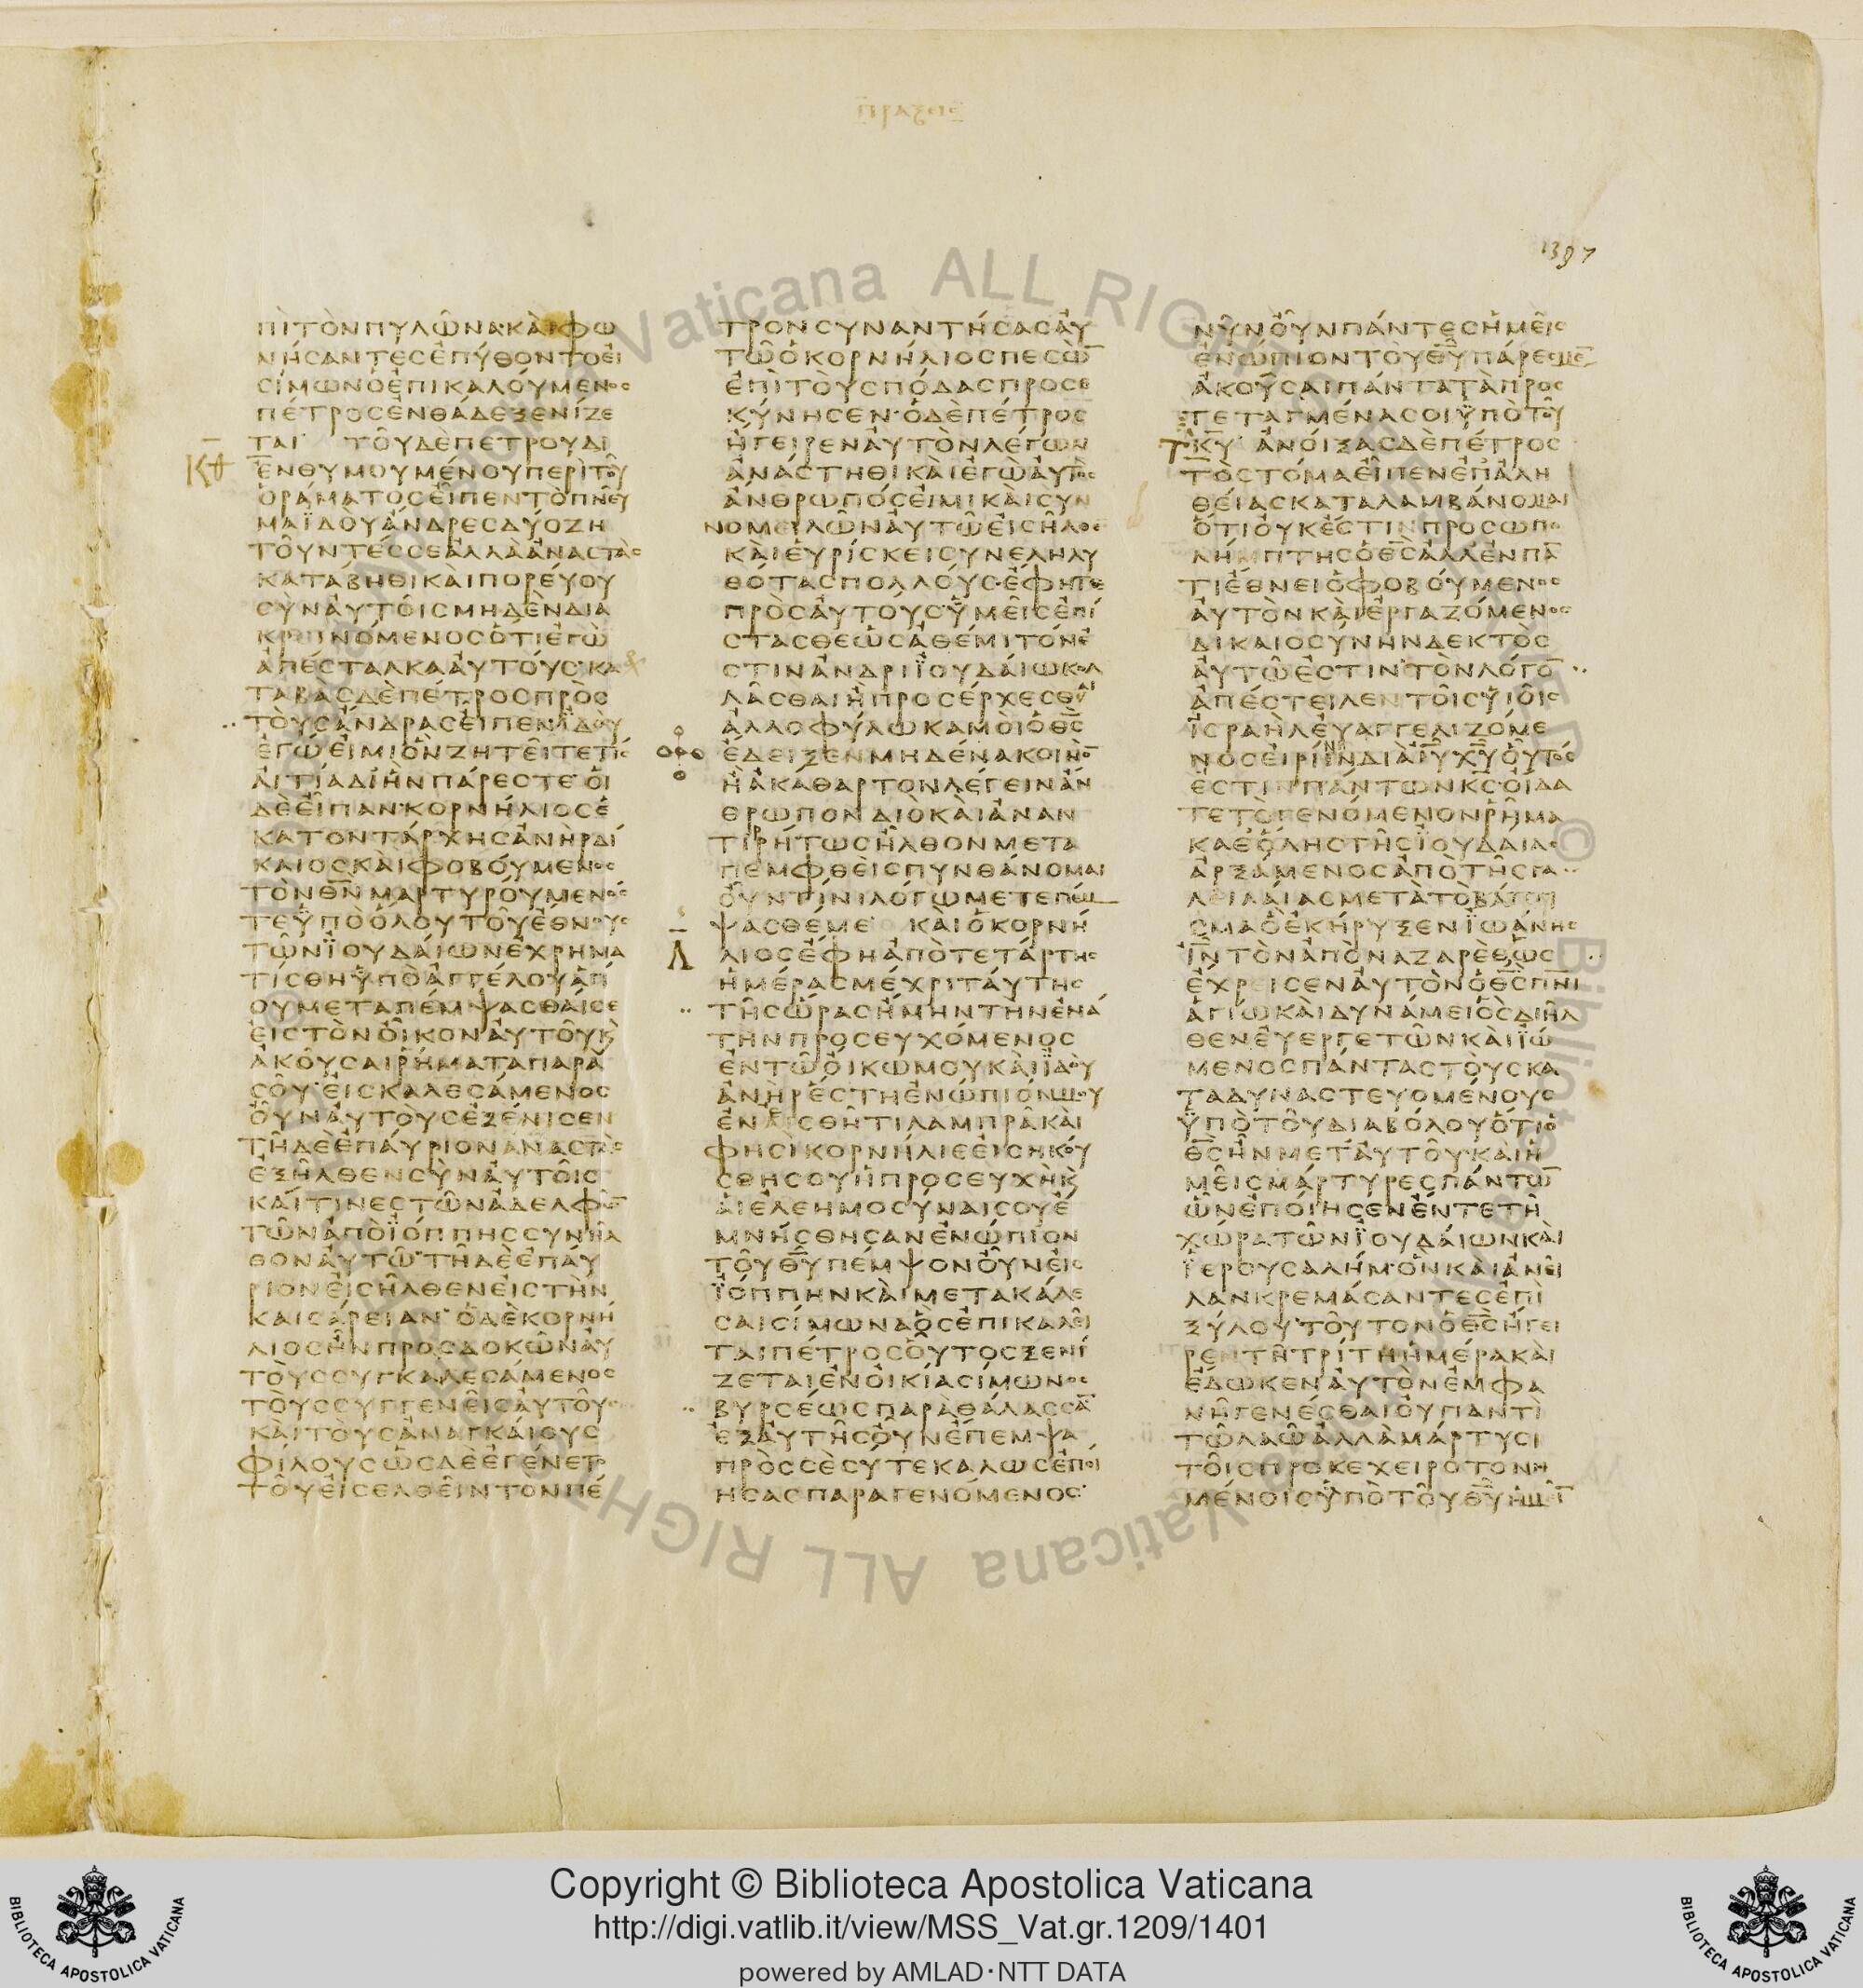 ΠΡΑΞΕΙϹ
1397
ΠΙΤΟΝΠΥΛΩΝΑ·ΚΑΙΦΩ
ΝΗϹΑΝΤΕϹΕΠΥΘΟΝΤΟΕΙ
ϹΙΜΩΝΟΕΠΙΚΑΛΟΥΜΕΝΟϹ
ΠΕΤΡΟϹΕΝΘΑΔΕΞΕΝΙΖΕ
ΤΑΙ ΤΟΥΔΕΠΕΤΡΟΥΔΙ
ΕΝΘΥΜΟΥΜΕΝΟΥΠΕΡΙΤΟΥ
ΟΡΑΜΑΤΟϹΕΙΠΕΝΤΟΠΝΕΥ
ΜΑΪΔΟΥΑΝΔΡΕϹΔΥΟΖΗ
ΤΟΥΝΤΕϹϹΕΑΛΛΑΑΝΑϹΤΑϹ
ΚΑΤΑΒΗΘΙΚΑΙΠΟΡΕΥΟΥ
ϹΥΝΑΥΤΟΙϹΜΗΔΕΝΔΙΑ
ΚΡΕΙΝΟΜΕΝΟϹΟΤΙΕΓΩ
ΑΠΕϹΤΑΛΚΑΑΥΤΟΥϹ·ΚΑ
ΤΑΒΑϹΔΕΠΕΤΡΟϹΠΡΟϹ
ΤΟΥϹΑΝΔΡΑϹΕΙΠΕΝΪΔΟΥ
ΕΓΩΕΙΜΙΟΝΖΗΤΕΙΤΕΤΙϹ
ΑΙΤΙΑΔΙΗΝΠΑΡΕϹΤΕ·ΟΙ
ΔΕΕΙΠΑΝ·ΚΟΡΝΗΛΙΟϹΕ
ΚΑΤΟΝΤΑΡΧΗϹΑΝΗΡΔΙ
ΚΑΙΟϹΚΑΙΦΟΒΟΥΜΕΝΟϹ
ΤΟΝΘ̅Ν̅ΜΑΡΤΥΡΟΥΜΕΝΟϹ
ΤΕΫΠΟΟΛΟΥΤΟΥΕΘΝΟΥϹ
ΤΩΝΪΟΥΔΑΙΩΝΕΧΡΗΜΑ
ΤΙϹΘΗΫΠΟΑΓΓΕΛΟΥΑΓΙ
ΟΥΜΕΤΑΠΕΜΨΑϹΘΑΙϹΕ
ΕΙϹΤΟΝΟΙΚΟΝΑΥΤΟΥΚ
ΑΚΟΥϹΑΙΡΗΜΑΤΑΠΑΡΑ
ϹΟΥ·ΕΙϹΚΑΛΕϹΑΜΕΝΟϹ
ΟΥΝΑΥΤΟΥϹΕΞΕΝΙϹΕΝ
ΤΗΔΕΕΠΑΥΡΙΟΝΑΝΑϹΤΑϹ
ΕΞΗΛΘΕΝϹΥΝΑΥΤΟΙϹ
ΚΑΙΤΙΝΕϹΤΩΝΑΔΕΛΦΩ̅
ΤΩΝΑΠΟΪΟΠΠΗϹϹΥΝΗΛ
ΘΟΝΑΥΤΩ·ΤΗΔΕΕΠΑΥ
ΡΙΟΝΕΙϹΗΛΘΕΝΕΙϹΤΗΝ
ΚΑΙϹΑΡΕΙΑΝ·ΟΔΕΚΟΡΝΗ
ΛΙΟϹΗΝΠΡΟϹΔΟΚΩΝΑΥ
ΤΟΥϹϹΥΓΚΑΛΕϹΑΜΕΝΟϹ
ΤΟΥϹϹΥΓΓΕΝΕΙϹΑΥΤΟΥ
ΚΑΙΤΟΥϹΑΝΑΓΚΑΙΟΥϹ
ΦΙΛΟΥϹΩϹΔΕΕΓΕΝΕΤΟ
ΤΟΥΕΙϹΕΛΘΕΙΝΤΟΝΠΕ
ΤΡΟΝϹΥΝΑΝΤΗϹΑϹΑΥ
ΤΩΟΚΟΡΝΗΛΙΟϹΠΕϹΩ̅
ΕΠΙΤΟΥϹΠΟΔΑϹΠΡΟϹΕ
ΚΥΝΗϹΕΝ·ΟΔΕΠΕΤΡΟϹ
ΗΓΕΙΡΕΝΑΥΤΟΝΛΕΓΩΝ
ΑΝΑϹΤΗΘΙΚΑΙΕΓΩΑΥΤΟϹ
ΑΝΘΡΩΠΟϹΕΙΜΙΚΑΙϹΥΝ
ΟΜΕΙΛΩΝΑΥΤΩΕΙϹΗΛΘΕ
ΚΑΙΕΥΡΙϹΚΕΙϹΥΝΕΛΗΛΥ
ΘΟΤΑϹΠΟΛΛΟΥϹ·ΕΦΗΤΕ
ΠΡΟϹΑΥΤΟΥϹΫΜΕΙϹΕΠΙ
ϹΤΑϹΘΕΩϹΑΘΕΜΙΤΟΝΕ
ϹΤΙΝΑΝΔΡΙΪΟΥΔΑΙΩΚΟΛ
ΛΑϹΘΑΙΗΠΡΟϹΕΡΧΕϹΘΑΙ
ΑΛΛΟΦΥΛΩΚΑΜΟΙΟΘ̅Ϲ̅
ΕΔΕΙΞΕΝΜΗΔΕΝΑΚΟΙΝΟ̅
ΗΑΚΑΘΑΡΤΟΝΛΕΓΕΙΝΑΝ
ΘΡΩΠΟΝΔΙΟΚΑΙΑΝΑΝ
ΤΙΡΗΤΩϹΗΛΘΟΝΜΕΤΑ
ΠΕΜΦΘΕΙϹΠΥΝΘΑΝΟΜΑΙ
ΟΥΝΤΙΝΙΛΟΓΩΜΕΤΕΠΕΜ
ΨΑϹΘΕΜΕ ΚΑΙΟΚΟΡΝΗ
ΛΙΟϹΕΦΗΑΠΟΤΕΤΑΡΤΗϹ
ΗΜΕΡΑϹΜΕΧΡΙΤΑΥΤΗϹ
ΤΗϹΩΡΑϹΗΜΗΝΤΗΝΕΝΑ
ΤΗΝΠΡΟϹΕΥΧΟΜΕΝΟϹ
ΕΝΤΩΟΙΚΩΜΟΥΚΑΙΪΔΟΥ
ΑΝΗΡΕϹΤΗΕΝΩΠΙΟΝΜΟΥ
ΕΝΕϹΘΗΤΙΛΑΜΠΡΑΚΑΙ
ΦΗϹΙΚΟΡΝΗΛΙΕΕΙϹΗΚΟΥ
ϹΘΗϹΟΥΗΠΡΟϹΕΥΧΗΚ
ΑΙΕΛΕΗΜΟϹΥΝΑΙϹΟΥΕ
ΜΝΗϹΘΗϹΑΝΕΝΩΠΙΟΝ
ΤΟΥΘ̅Υ̅ΠΕΜΨΟΝΟΥΝΕΙϹ
ΪΟΠΠΗΝΚΑΙΜΕΤΑΚΑΛΕ
ϹΑΙϹΙΜΩΝΑΟϹΕΠΙΚΑΛΕΙ
ΤΑΙΠΕΤΡΟϹΟΥΤΟϹΞΕΝΙ
ΖΕΤΑΙΕΝΟΙΚΙΑϹΙΜΩΝΟϹ
ΒΥΡϹΕΩϹΠΑΡΑΘΑΛΑϹϹΑ̅
ΕΞΑΥΤΗϹΟΥΝΕΠΕΜΨΑ
ΠΡΟϹϹΕϹΥΤΕΚΑΛΩϹΕΠΟΙ
ΗϹΑϹΠΑΡΑΓΕΝΟΜΕΝΟϹ·
ΝΥΝΟΥΝΠΑΝΤΕϹΗΜΕΙϹ
ΕΝΩΠΙΟΝΤΟΥΘ̅Υ̅ΠΑΡΕϹΜΕ̅
ΑΚΟΥϹΑΙΠΑΝΤΑΤΑΠΡΟϹ
ΤΕΤΑΓΜΕΝΑϹΟΙΫΠΟΤΟΥ
Κ̅Υ̅· ΑΝΟΙΞΑϹΔΕΠΕΤΡΟϹ
ΤΟϹΤΟΜΑΕΙΠΕΝΕΠΑΛΗ
ΘΕΙΑϹΚΑΤΑΛΑΜΒΑΝΟΜΑΙ
ΟΤΙΟΥΚΕϹΤΙΝΠΡΟϹΩΠΟ
ΛΗΜΠΤΗϹΟΘ̅Ϲ̅ΑΛΛΕΝΠΑ̅
ΤΙΕΘΝΕΙΟΦΟΒΟΥΜΕΝΟϹ
ΑΥΤΟΝΚΑΙΕΡΓΑΖΟΜΕΝΟϹ
ΔΙΚΑΙΟϹΥΝΗΝΔΕΚΤΟϹ
ΑΥΤΩΕϹΤΙΝ·ΤΟΝΛΟΓΟ̅
ΑΠΕϹΤΕΙΛΕΝΤΟΙϹΫΙΟΙϹ
ΪϹΡΑΗΛΕΥΑΓΓΕΛΙΖΟΜΕ
ΝΟϹΕΙΡΗΝΗΝΔΙΑΙ̅Υ̅Χ̅Υ̅ΟΥΤΟϹ
ΕϹΤΙΝΠΑΝΤΩΝΚ̅Ϲ̅ΟΙΔΑ
ΤΕΤΟΓΕΝΟΜΕΝΟΝΡΗΜΑ
ΚΑΘΟΛΗϹΤΗϹΪΟΥΔΑΙΑϹ
ΑΡΞΑΜΕΝΟϹΑΠΟΤΗϹΓΑ
ΛΕΙΛΑΙΑϹΜΕΤΑΤΟ
ϹΜΑΟΕΚΗΡΥΞΕΝΪΩΑΝΗϹ
Ι̅Ν̅ΤΟΝΑΠΟΝΑΖΑΡΕΘ·ΩϹ
ΕΧΡΕΙϹΕΝΑΥΤΟΝΟΘ̅Ϲ̅Π̅Ν̅Ι̅
ΑΓΙΩΚΑΙΔΥΝΑΜΕΙΟϹΔΙΗΛ
ΘΕΝΕΥΕΡΓΕΤΩΝΚΑΙΪΩ
ΜΕΝΟϹΠΑΝΤΑϹΤΟΥϹΚΑ
ΤΑΔΥΝΑϹΤΕΥΟΜΕΝΟΥϹ
ΫΠΟΤΟΥΔΙΑΒΟΛΟΥΟΤΙΟ
Θ̅Ϲ̅ΗΝΜΕΤΑΥΤΟΥ·ΚΑΙΗ
ΜΕΙϹΜΑΡΤΥΡΕϹΠΑΝΤΩ̅
ΩΝΕΠΟΙΗϹΕΝΕΝΤΕΤΗ
ΧΩΡΑΤΩΝΪΟΥΔΑΙΩΝΚΑΙ
ΪΕΡΟΥϹΑΛΗΜ·ΟΝΚΑΙΑΝΕΙ
ΛΑΝΚΡΕΜΑϹΑΝΤΕϹΕΠΙ
ΞΥΛΟΥ·ΤΟΥΤΟΝΟΘ̅Ϲ̅ΗΓΕΙ
ΡΕΝΤΗΤΡΙΤΗΗΜΕΡΑΚΑΙ
ΕΔΩΚΕΝΑΥΤΟΝΕΜΦΑ
ΝΗΓΕΝΕϹΘΑΙΟΥΠΑΝΤΙ
ΤΩΛΑΩΑΛΛΑΜΑΡΤΥϹΙ
ΤΟΙϹΠΡΟΚΕΧΕΙΡΟΤΟΝΗ
ΜΕΝΟΙϹΫΠΟΤΟΥΘ̅Υ̅ΗΜΙ̅
Vaticana ALL RIGHTS
Copyright © Biblioteca Apostolica Vaticana
http://digi.vatlib.it/view/MSS_Vat.gr.1209/1401
powered by AMLAD·NTT DATA
BIBLIOTECA APOSTOLICA VATICANA
BIBLIOTECA APOSTOLICA VATICANA